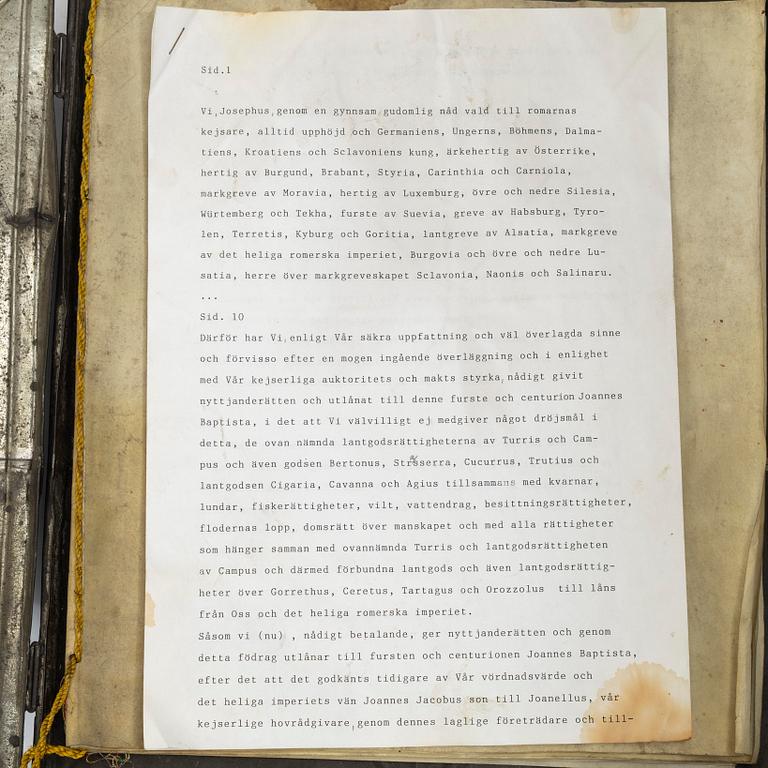 Sid.1
Vi,Josephus,genom en gynnsam gudomlig nåd vald till romarnas
kejsare, alltid upphöjd och Germaniens, Ungerns, Böhmens, Dalma-
tiens, Kroatiens och Sclavoniens kung, ärkehertig av Österrike,
hertig av Burgund, Brabant, Styria, Carinthia och Carniola,
markgreve av Moravia, hertig av Luxemburg, övre och nedre Silesia,
Würtemberg och Tekha, furste av Suevia, greve av Habsburg, Tyro-
len, Terretis, Kyburg och Goritia, lantgreve av Alsatia, markgreve
av det heliga romerska imperiet, Burgovia och övre och nedre Lu-
satia, herre över markgreveskapet Sclavonia, Naonis och Salinaru.
...
Sid. 10
Därför har Vi,enligt Vår säkra uppfattning och väl överlagda sinne
och förvisso efter en mogen ingående överläggning och i enlighet
med Vår kejserliga auktoritets och makts styrka,nådigt givit
nyttjanderätten och utlånat till denne furste och centurion Joannes
Baptista, i det att Vi välvilligt ej medgiver något dröjsmål i
detta, de ovan nämnda lantgodsrättigheterna av Turris och Cam-
pus och även godsen Bertonus, Cucurrus, Trutius och
lantgodsen Cigaria, Cavanna och Agius tillsammans med kvarnar,
lundar, fiskerättigheter, vilt, vattendrag, besittningsrättigheter,
flodernas lopp, domsrätt över manskapet och med alla rättigheter
som hänger samman med ovannämnda Turris och lantgodsrättigheten
av Campus och därmed förbundna lantgods och även lantgodsrättig-
heter över Gorrethus, Ceretus, Tartagus och Orozzolus till låns
från Oss och det heliga romerska imperiet.
Såsom vi (nu) , nådigt betalande, ger nyttjanderätten och genom
detta födrag utlånar till fursten och centurionen Joannes Baptista,
efter det att det godkänts tidigare av Vår vördnadsvärde och
det heliga imperiets vän Joannes Jacobus son till Joanellus, vår
kejserlige hovrådgivare,genom dennes laglige företrädare och till-